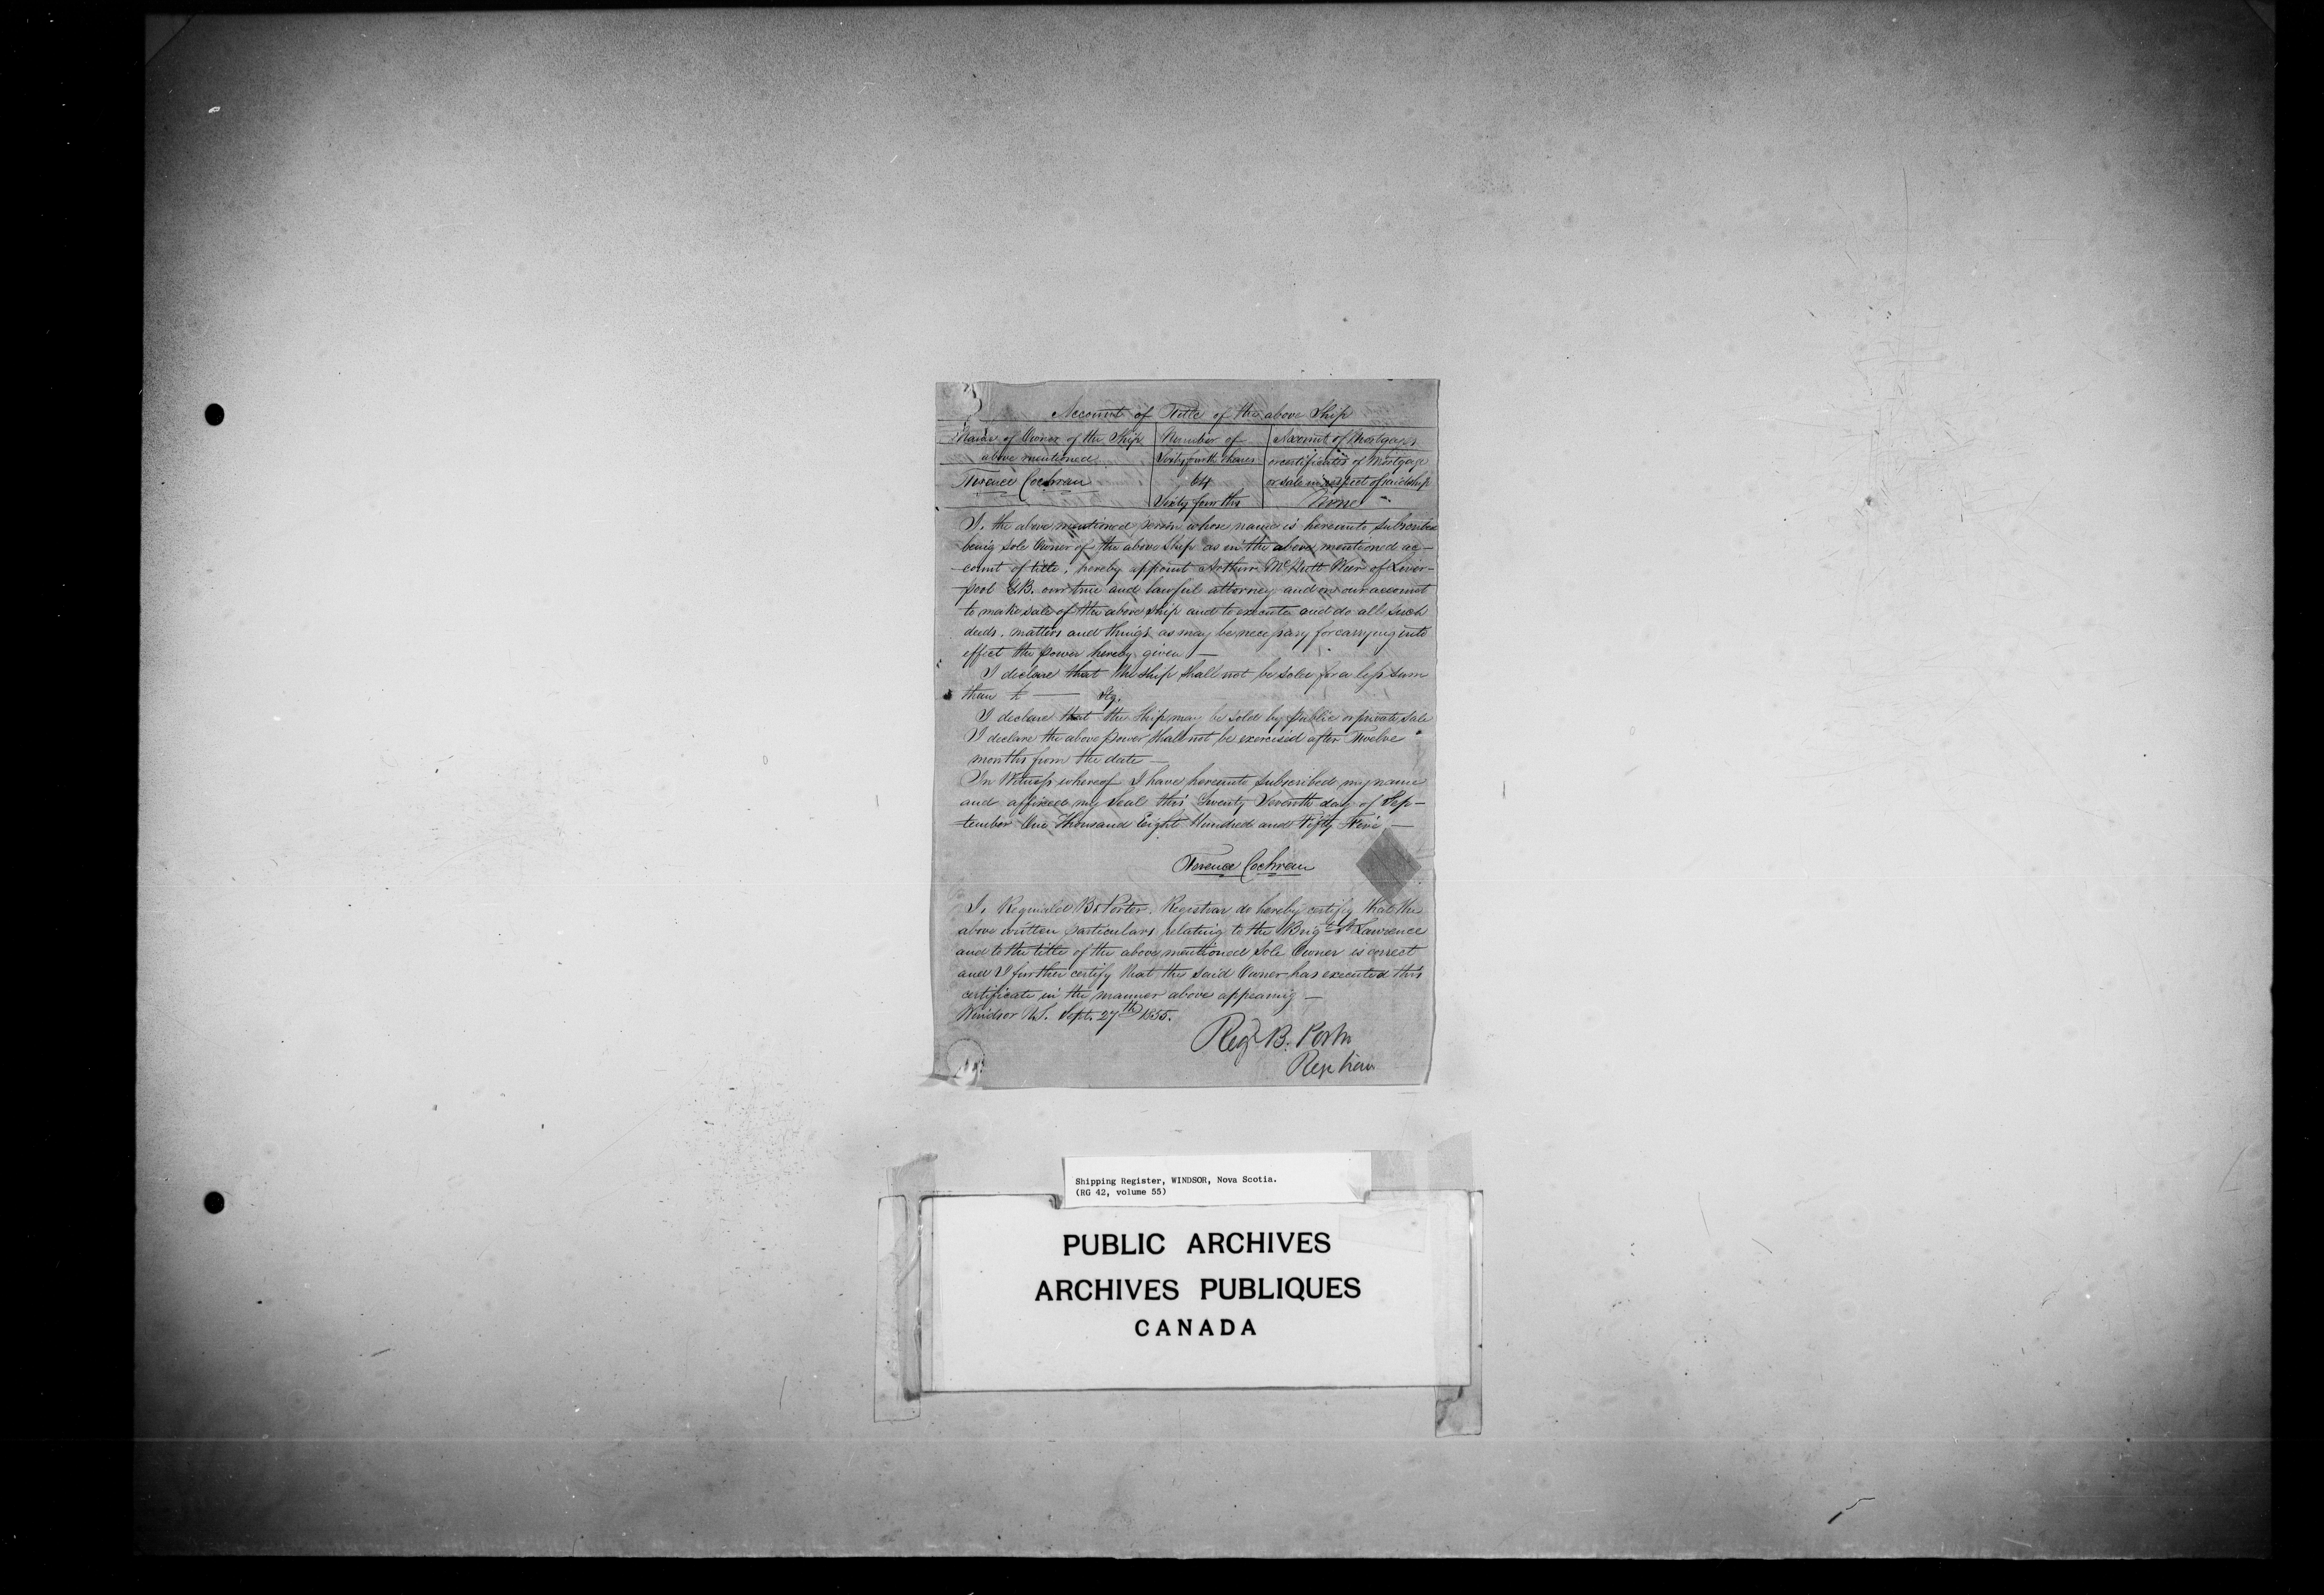 Account of Title of the above Ship
Name of Owner of the Ship above mentioned
Number of Sixty fourth Shares
Account of Mortgages or certificates of Mortgage or sale in respect of said ship
Terence Cochran
64 Sixty fourths
None
I, the above mentioned person whose name is hereunto subscribed
being sole Owner of the above Ship as in the above mentioned ac-
count of title, hereby appoint Arthur McNutt Weir of Liver-
pool G.B. our true and lawful attorney and on our account
to make sale of the above ship and to execute and do all such
deeds, matters and things as may be necessary for carrying into
effect the power hereby given —
I declare that the Ship shall not be soled for a less sum
than £ —— Stg.
I declare that the Ship may be sold by public or private sale
I declare the above power shall not be exercised after Twelve
months from the date —
In Witness whereof I have hereunto subscribed my name
and affixed my Seal this Twenty Seventh day of Sep-
tember One Thousand Eight Hundred and Fifty Five —
Terence Cochran
I, Reginald B. Porter, Registrar do hereby certify that the
above written particulars relating to the Brigt St Lawrence
and to the title of the above mentioned Sole Owner is correct
and I further certify that the said Owner has executed this
certificate in the manner above appearing —
Windsor N.S. Sept. 27th 1855.
Regd B. Porter
Registrar
Shipping Register, WINDSOR, Nova Scotia.
(RG 42, volume 55)
PUBLIC ARCHIVES
ARCHIVES PUBLIQUES
CANADA